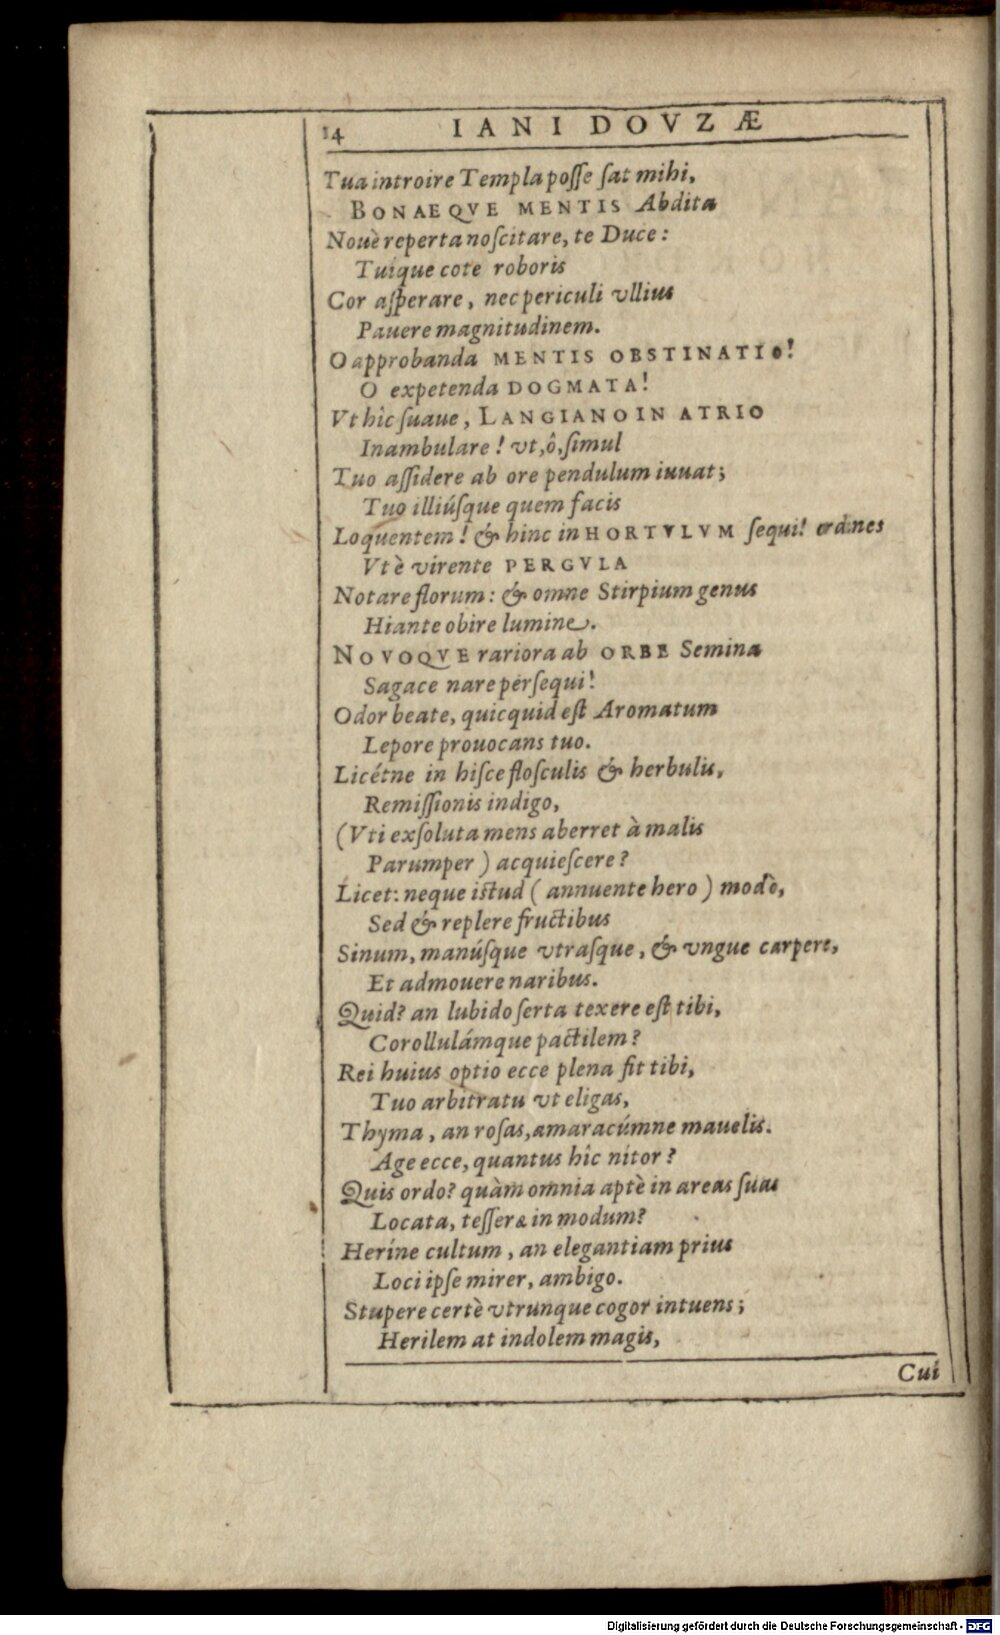 14 IANI DOVZÆ
Tua introire Templa posse sat mihi,
BONAEQVE MENTIS Abdita
Nouè reperta noscitare, te Duce:
Tuíque cote roboris
Cor asperare, nec periculi vllius
Pauere magnitudinem.
O approbanda MENTIS OBSTINATIO!
O expetenda DOGMATA!
Vt hîc suaue, LANGIANO IN ATRIO
Inambulare! vt, ô, simul
Tuo assidere ab ore pendulum iuuat;
Tuo illiúsque quem facis
Loquentem! & hinc in HORTVLVM sequi! ordines
Vt è virente PERGVLA
Notare florum: & omne Stirpium genus
Hiante obire lumine.
NOVOQVE rariora ab ORBE Semina
Sagace nare persequi!
Odor beate, quicquid est Aromatum
Lepore prouocans tuo.
Licétne in hisce flosculis & herbulis,
Remissionis indigo,
(Vti exsoluta mens aberret à malis
Parumper) acquiescere?
Licet: neque istud (annuente hero) modò,
Sed & replere fructibus
Sinum, manúsque vtrasque, & vngue carpere,
Et admouere naribus.
Quid? an lubido serta texere est tibi,
Corollulámque pactilem?
Rei huius optio ecce plena fit tibi,
Tuo arbitratu vt eligas,
Thyma, an rosas, amaracúmne mauelis.
Age ecce, quantus hîc nitor?
Quis ordo? quàm omnia aptè in areas suas
Locata, tesseræ in modum?
Heríne cultum, an elegantiam prius
Loci ipse mirer, ambigo.
Stupere certè vtrunque cogor intuens;
Herilem at indolem magis,
Cui
Digitalisierung gefördert durch die Deutsche Forschungsgemeinschaft - DFG